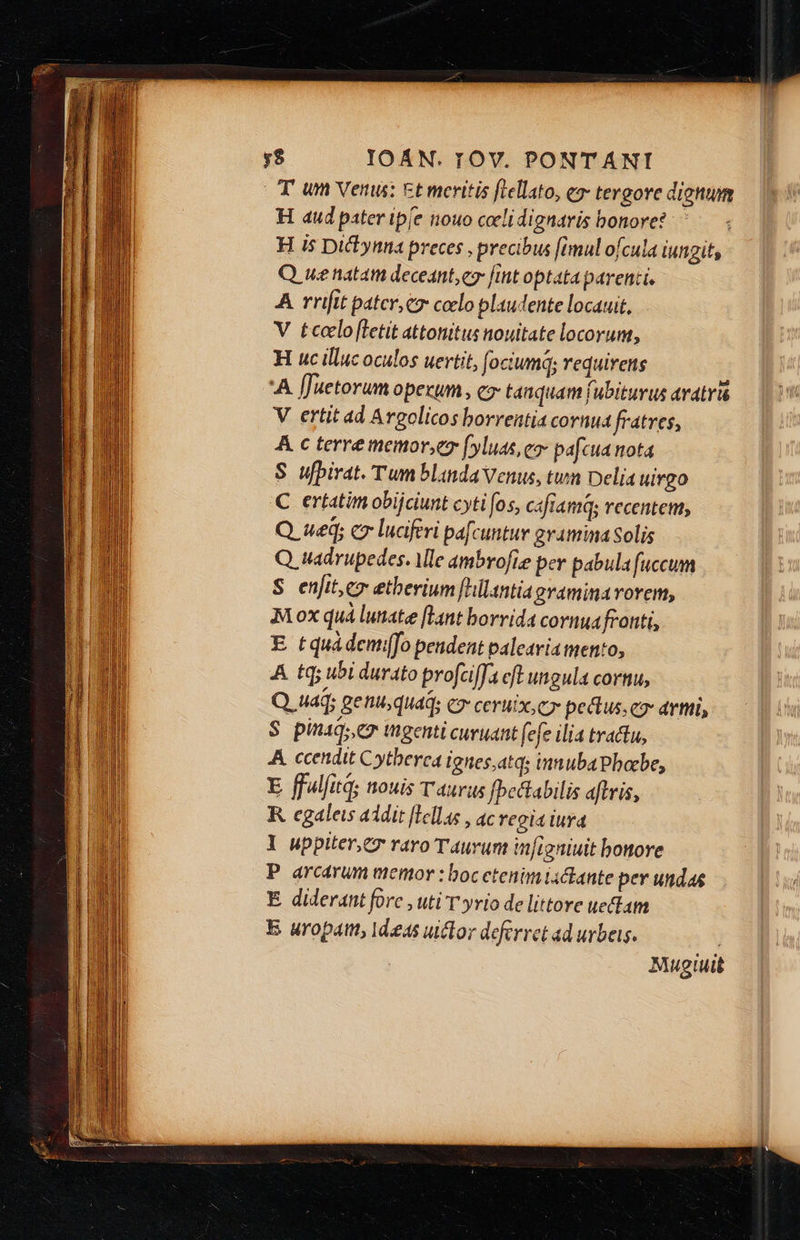 58 IOAN. IOV. PONTANI
T um Venus: Et meritis ſtellato, & tergore dignum
H aud pater ipſe nouo cœli dignaris honore?
H is Dictynna preces, precibus ſimul oſcula iungit,
Q uæ natam deceant, & ſint optata parenti.
A rriſit pater, & cœlo plaudente locauit.
V t cœlo ſtetit attonitus nouitate locorum,
H uc illuc oculos uertit, ſociumq; requirens
A ſſuetorum operum, & tanquam ſubiturus aratris
V ertit ad Argolicos horrentia cornua fratres,
A c terræ memor, & ſyluas, & paſcua nota
S uſpirat. Tum blanda Venus, tum Delia uirgo
C ertatim obijciunt cytiſos, caſiamq; recentem,
Q uæq; & luciferi paſcuntur gramina Solis
Q uadrupedes. Ille ambroſiæ per pabula ſuccum
S enſit, & ætherium ſtillantia gramina rorem,
M ox quà lunatæ ſtant horrida cornua fronti,
E t quà demiſſo pendent palearia mento,
A tq; ubi durato profciſſa eſt ungula cornu,
Q uaq; genu, quaq; & ceruix, & pectus, & armi,
S pinaq;, & ingenti curuant ſeſe ilia tractu,
A ccendit Cytherea ignes, atq; innuba Phœbe,
E ffulſitq; nouis Taurus ſpectabilis aſtris,
R egaleis addit ſtellas, ac regia iura
I uppiter, & raro Taurum inſigniuit honore
P arcarum memor: hoc etenim iactante per undas
E diderant fore, uti Tyrio de littore uectam
E uropam, Idæas uictor deferret ad urbeis.
Mugiuit